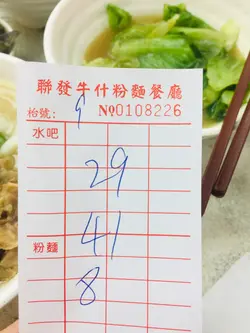 聯發牛什粉麵餐廳
枱號: 9 №0108226
水吧
29
粉麵 41
8